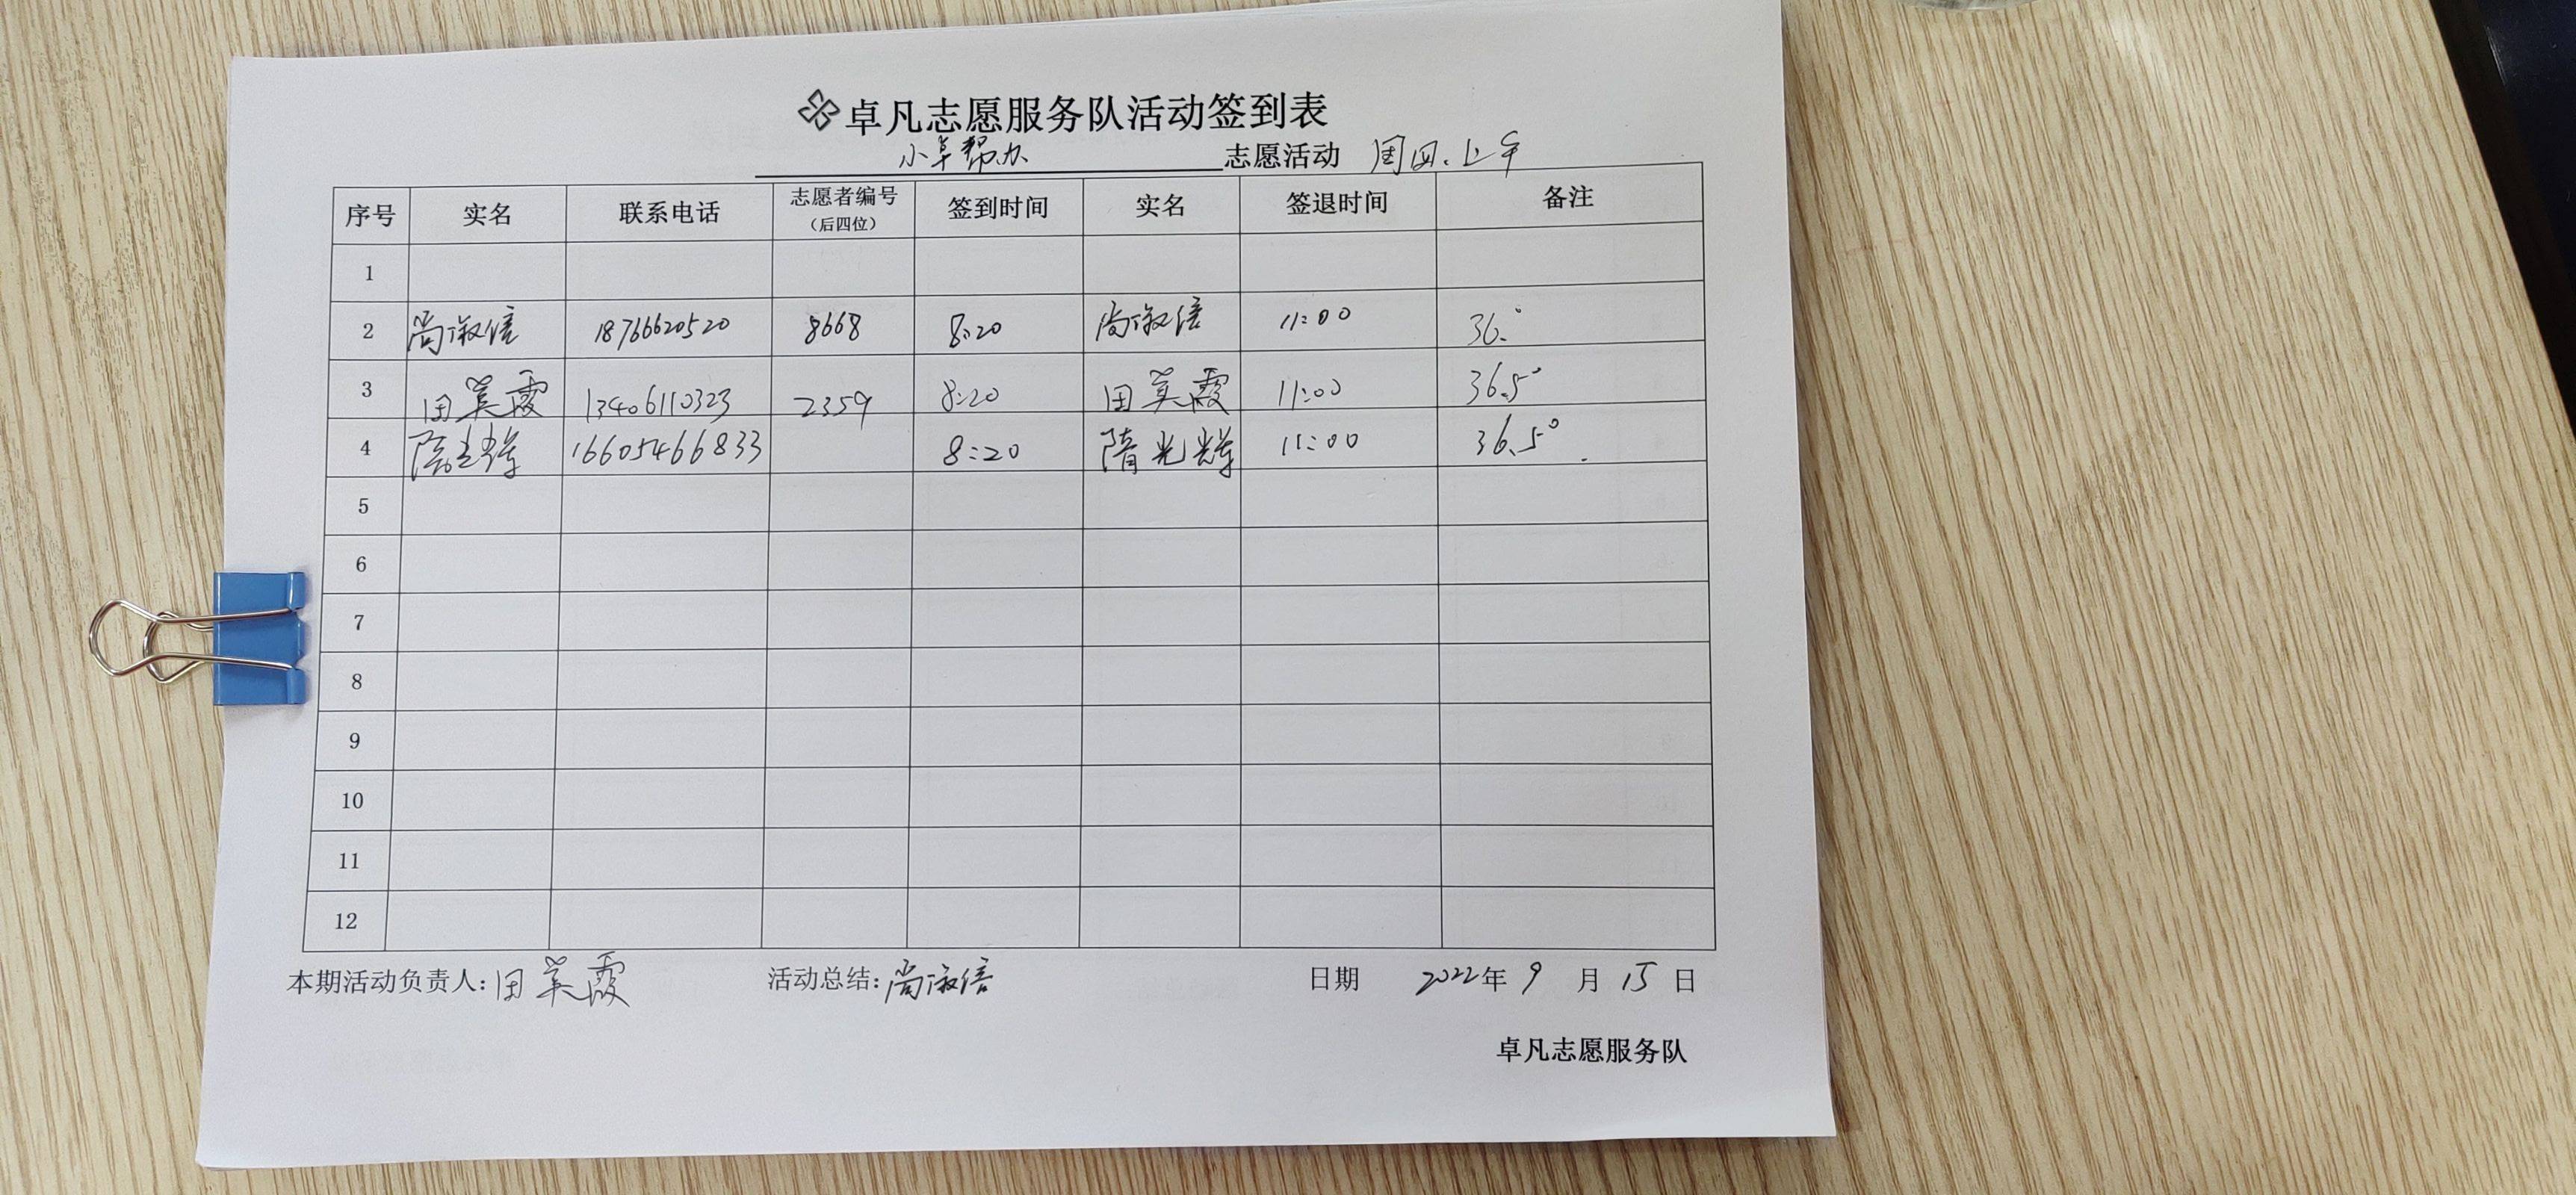 卓凡志愿服务队活动签到表
小卓帮办 志愿活动 周四.上午
序号 实名 联系电话 志愿者编号（后四位） 签到时间 实名 签退时间 备注
1
2 尚淑信 18766620520 8668 8:20 尚淑信 11:00 36.°
3 田英霞 13406110323 2359 8:20 田英霞 11:00 36.5°
4 隋光辉 16605466833 8:20 隋光辉 11:00 36.5°
5
6
7
8
9
10
11
12
本期活动负责人：田英霞 活动总结：尚淑信 日期 2022年 9 月 15 日
卓凡志愿服务队